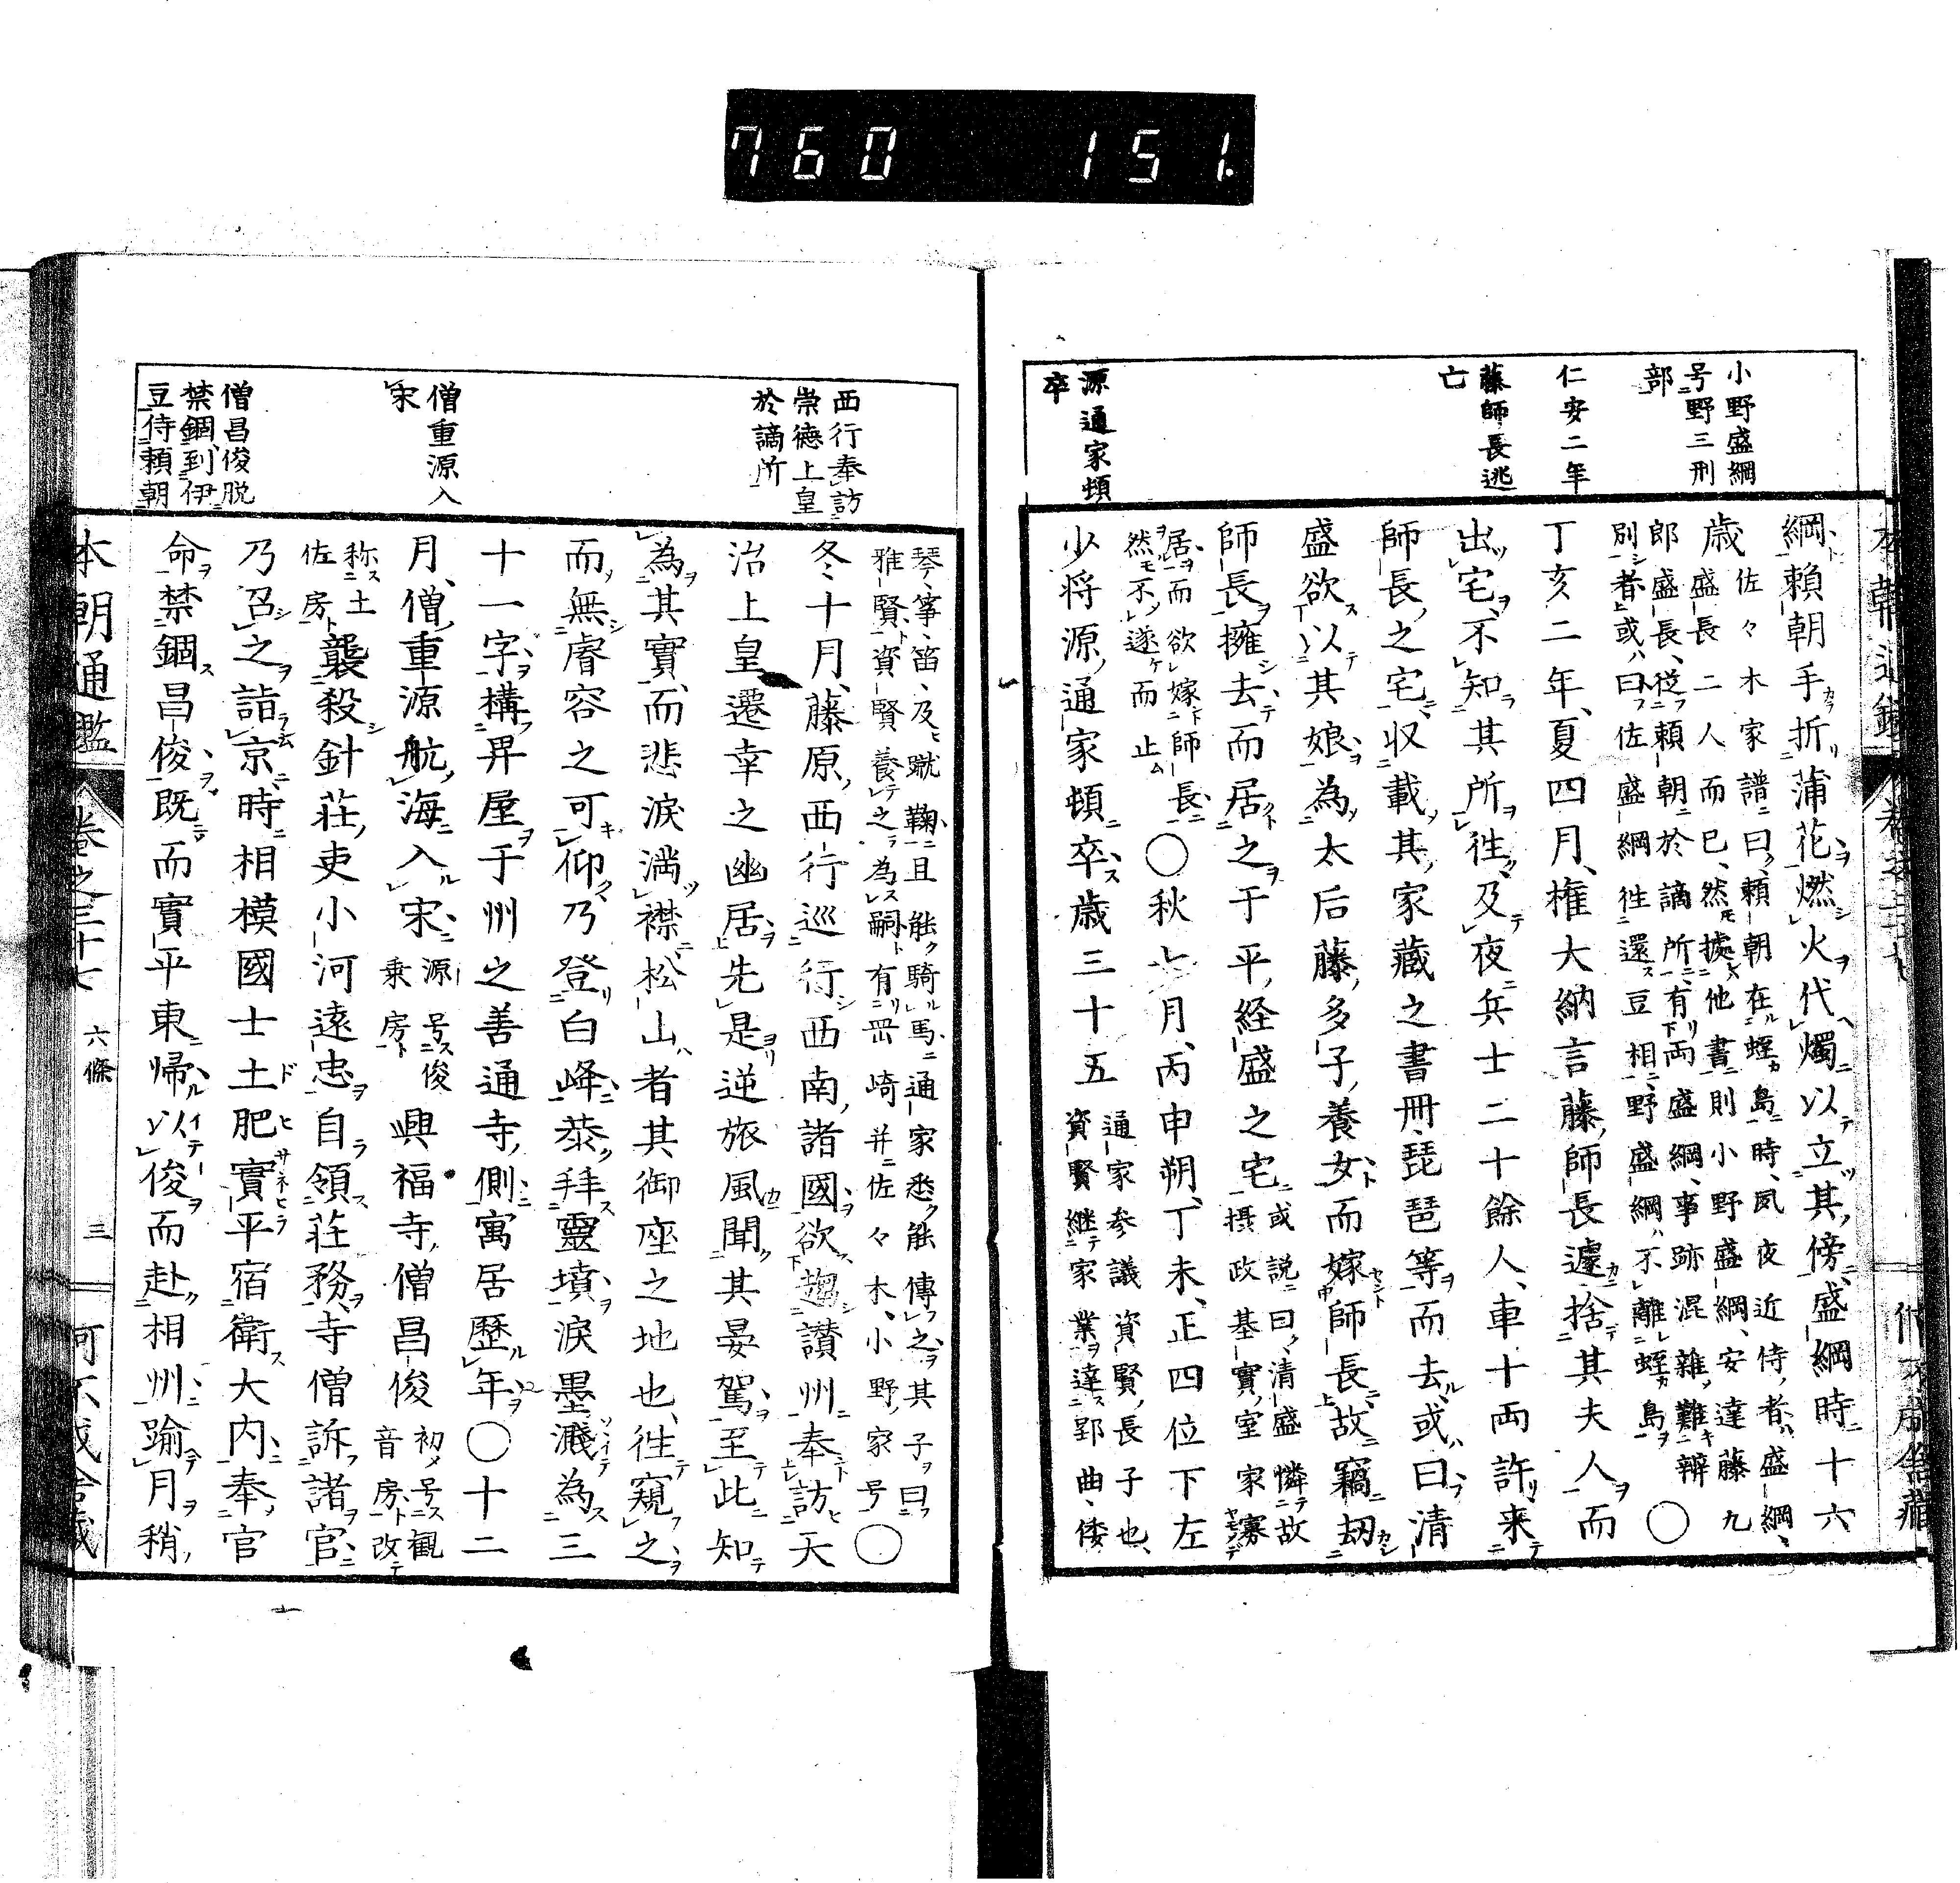 760 151.
小野盛綱
号野三刑
部
仁安二年
藤師長逃
亡
源通家頓
卒
綱頼朝手折蒲花燃火代燭以立其傍盛綱時十六
歳佐々木家譜曰頼朝在蛭島時夙夜近侍者盛綱
盛長二人而已然拠他書則小野盛綱安達藤九
郎盛長従頼朝於謫所有両盛綱事跡混雑難辨
別者或曰佐盛綱往還豆相野盛綱不離蛭島〇
丁亥二年夏四月権大納言藤師長遽捨其夫人而
出宅不知其所往及夜兵士二十餘人車十両許来
師長之宅収載其家蔵之書冊琵琶等而去或曰清
盛欲以其娘為太后藤多子養女而嫁師長故竊劫
師長擁去而居之于平経盛之宅或説曰清盛憐故
摂政基實室家寡
居而欲嫁師長
然不遂而止
〇秋七月丙申朔丁未正四位下左
少将源通家頓卒歳三十五通家参議資賢長子也
資賢継家業達郢曲倭
本朝通鑑 巻之三十七 六條 三
西行奉訪
崇徳上皇
於謫所
僧重源入
宋
僧昌俊脱
禁錮到伊
豆侍頼朝
琴箏笛及蹴鞠且能騎馬通家悉能傳之其子曰
雅賢資賢養之為嗣有岡崎并佐々木小野家号〇
冬十月藤原西行巡行西南諸國欲趨讃州奉訪天
治上皇遷幸之幽居先是逆旅風聞其晏駕至此知
為其實而悲涙満襟松山者其御座之地也往窺之
而無睿容之可仰乃登白峰恭拝靈墳涙墨濺為三
十一字構昇屋于州之善通寺側寓居歴年〇十二
月僧重源航海入宋源号俊
乗房
興福寺僧昌俊初号観
音房改
称土
佐房
襲殺針荘吏小河遠忠自領荘務寺僧訴諸官
乃召之詣京時相模國士土肥實平宿衛大内奉官
命禁錮昌俊既而實平東帰以俊而赴相州踰月稍